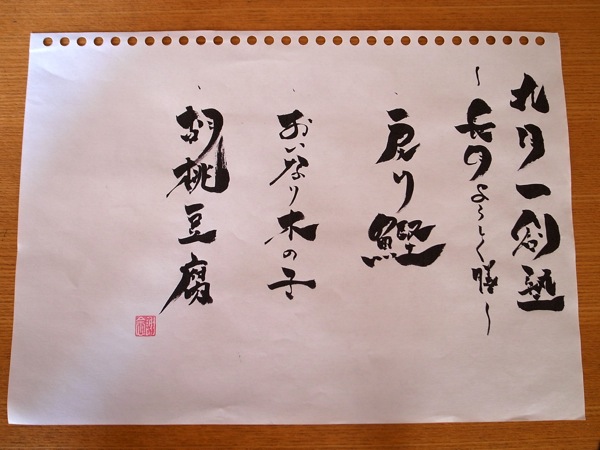 九月一創塾
〜長月よろしく膳〜
、戻り鰹
、おいなり木の子
、胡桃豆腐